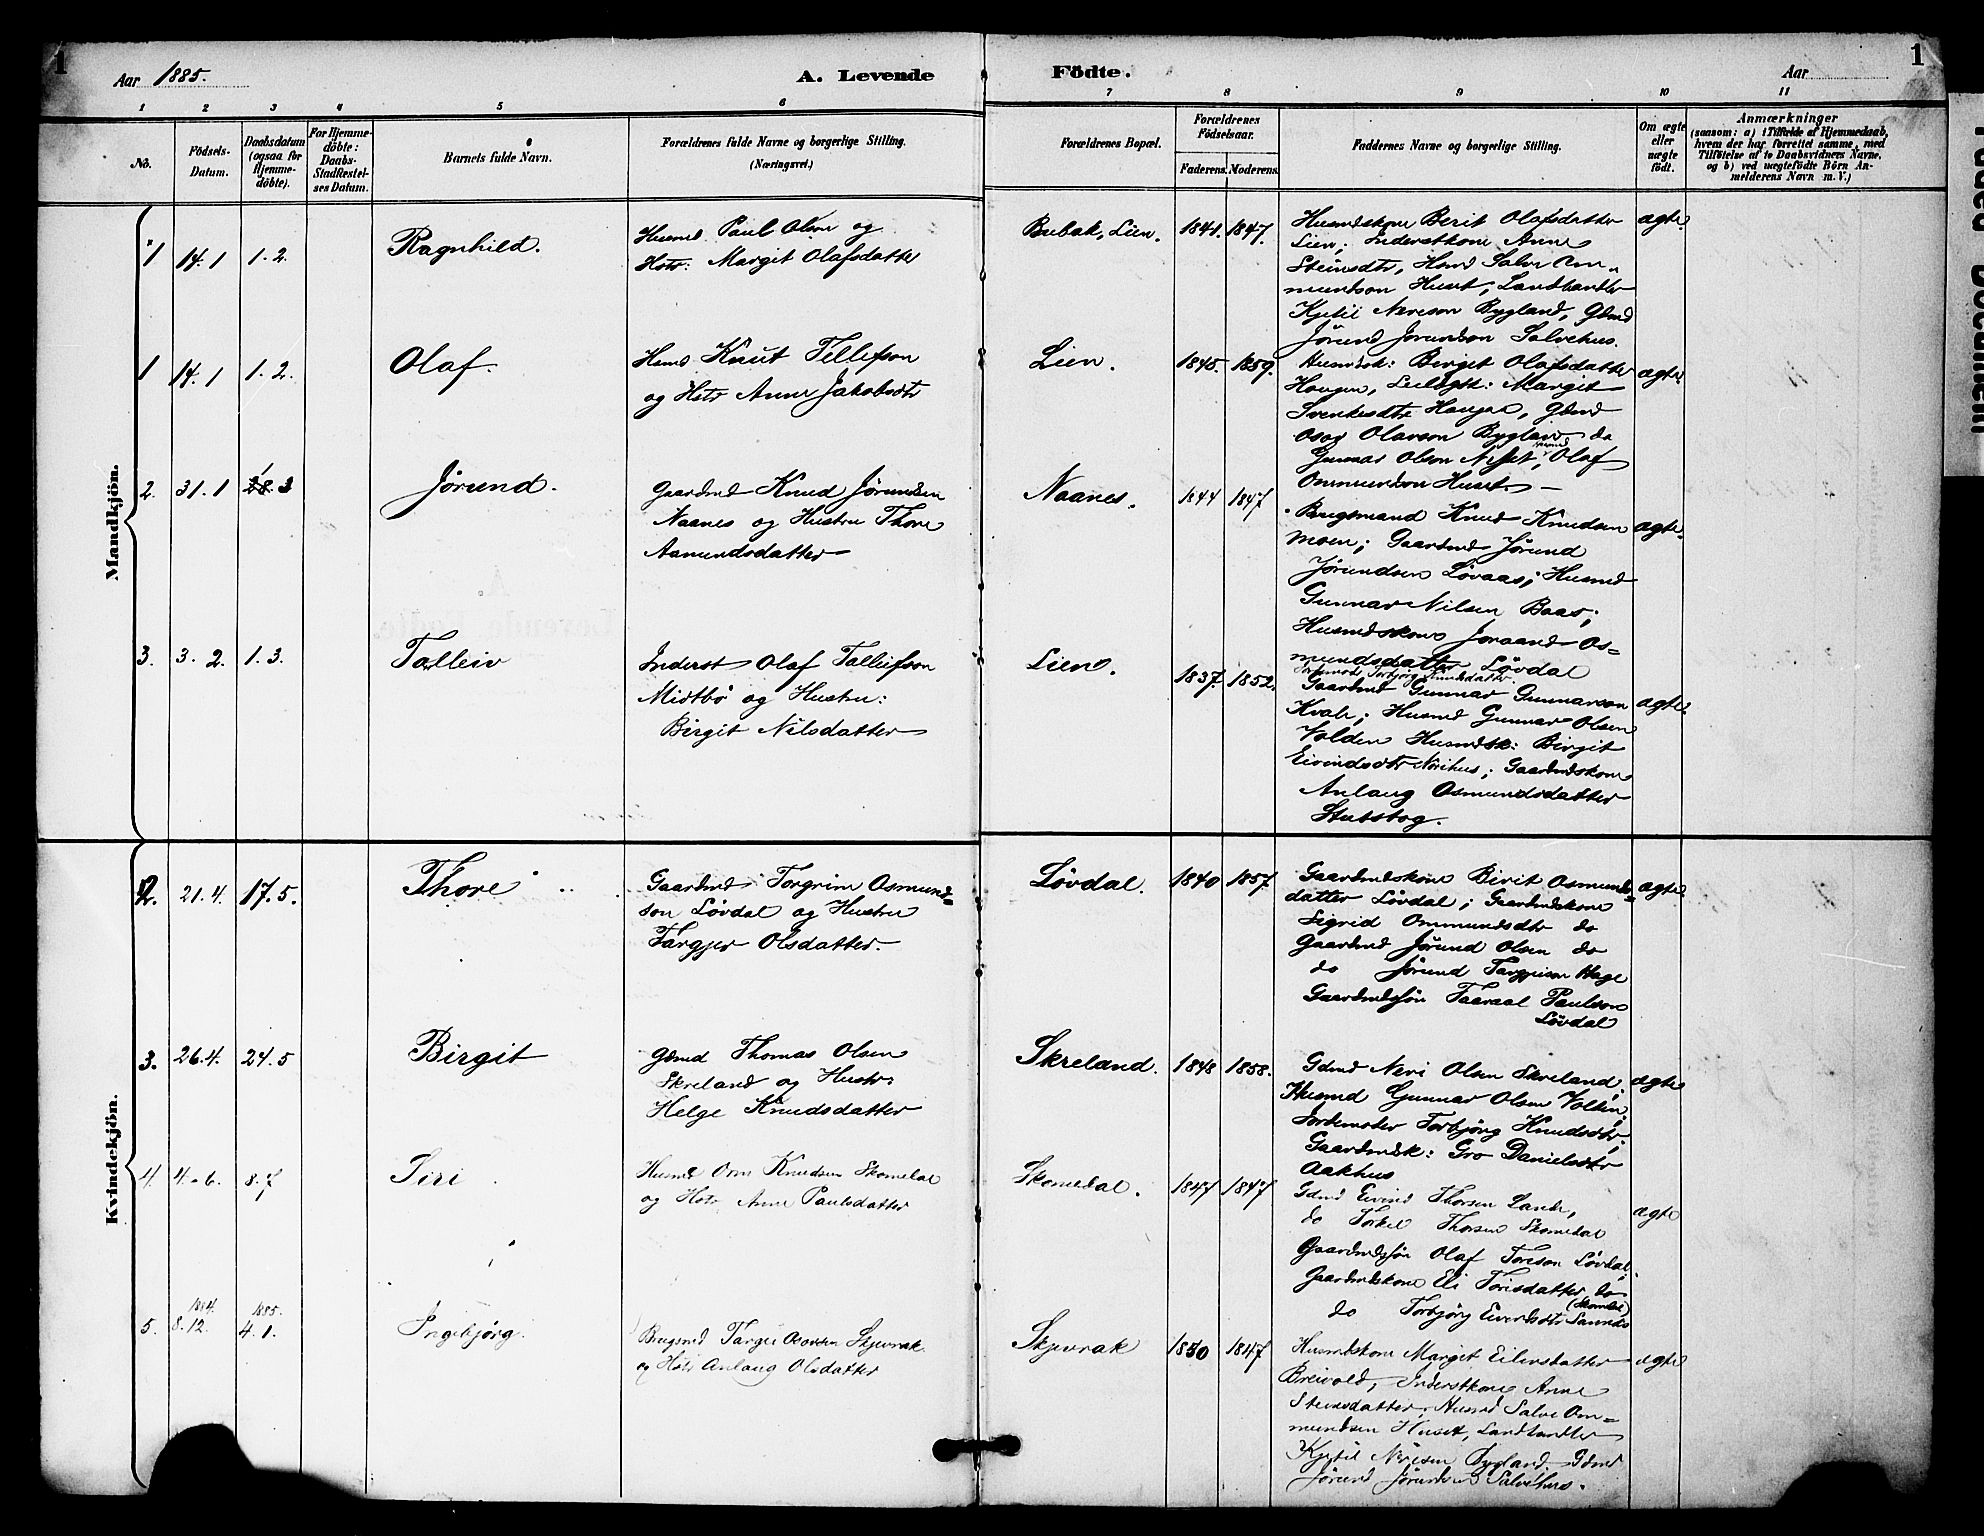 1
1
Aar 1885.
A. Levende
Födte.
Aar
1 2 3 4 5 6 7 8 9 10 11
No.
Födsels-
Datum.
Daabsdatum
(ogsaa for
Hjemme-
döbte).
For Hjemme-
döbte:
Daabs-
Stadfæstel-
ses Datum.
Barnets fulde Navn.
Forældrenes fulde Navne og borgerlige Stilling.
(Næringsvei.)
Forældrenes Bopæl.
Forældrenes
Födselsaar.
Faderens. Moderens.
Faddernes Navne og borgerlige Stilling.
Om ægte
eller
uægte
födt.
Anmærkninger
(saasom: a) i Tilfælde af Hjemmedaab,
hvem der har forrettet samme, med
Tilföielse af to Daabsvidners Navne,
og b) ved uægtefödte Börn An-
melderens Navn m. V.)
Mandkjön.
1 14.1 1.2. Ragnhild.
Husmd. Paul Olsen og
Hstr: Margit Olafsdatter
Bubak, Lien. 1841. 1847.
Husmdskone Berit Olafsdatter
Lien; Inderstkone Anne
Steinsdtr, Hsmd Salve Om-
mundson Huset, Landhandler
Kjetil Nereson Bygland, Gdmd
Jørund Jorundson Salvehus.
ægte.
1 14.1 1.2. Olaf.
Hsmd Knut Tellefson
og Hstr Anne Jakobsdtr
Lien. 1845. 1859.
Husmdsk: Birget Olafsdatter
Haugen, Margit
Haugen, Gdmd
Olavson Bygland do
Gunnar Olson Olaf
Ommundson Huset. —
ægte.
2. 31.1 1 3 Jørund.
Gaardmd Knud Jørundsen
Naanes og Hustru Thore
Aamundsdatter
Naanes. 1844 1847
Brugsmand Knud Knudsen
Moen; Gaardmd Jørund
Jørundsen Løvaas; Husmd
Gunnar Nilsen Baas;
Husmdskone Joraand Os=
mundsdatter Løvdal
Torbjørg Knudsdatter
ægte.
3. 3.2. 1.3. Talleiv
Inderst Olaf Talleifson
Midtbö og Hustru:
Birgit Nilsdatter
Lien. 1837. 1852.
Gaardmd Gunnar Gunnarson
Kvale; Husmd Gunnar Olsen
Volden Husmdsk: Birgit
Eivindsdtr Norihus; Gaardmdskone
Anlaug Osmundsdatter
Stubstog.
ægte.
Kvindekjön.
2. 21.4. 17.5. Thore
Gaardmd Torgrim Osmund=
son Løvdal og Hustru
Targjer Olsdatter.
Løvdal. 1840 1857.
Gaardmdskone Birit Osmunds=
datter Løvdal; Gaardmdskone
Sigrid Ommundsdtr do
Gaardmd Jørund Olsen do
do Jørund Hage
Gaardmdssøn Taaraal Paulson
Løvdal
ægte.
3. 26.4. 24.5 Birgit
Gdmd Thomas Olsen
Skreland og Hustr:
Helge Knudsdatter
Skreland. 1848 1858.
Gdmd Neri Olsen Skreland;
Husmd Gunnar Olsen Volden;
Jordemoder Torbjörg Knudsdtr.
Gaardmdsk: Gro Danielsdtr
Aakhus
ægte
4. 4.6. 8.7 Siri.
Husmd Orm Knudsen Skomedal
og Hstr Anne Paulsdatter
Skomedal. 1847 1847
Gdmd Eivind Thorsen Lande,
do Torkel Thorsen Skomedal
Gaardmdssøn Olaf Toreson Løvdal,
Gaardmdskone Eli Torisdatter do
(Skomedal)
do Torbjörg Eivindsdtr Sannes
ægte
5. 1884. 8.12. 1885. 4.1. Ingebjørg.
Brugsmd Targei Osovsen Skjevrak
og Hstr Anlaug Olsdatter
Skjevrak 1850 1847
Husmdskone Margit Eilevsdatter
Breivold, Inderstkone Anne
Steinsdatter, Husmd Salve Om=
mundsen Huset, Landhandler
Kjetil Neresen Bygland. Gdmd
Jørund Jørundsen Salvehus.
ægte